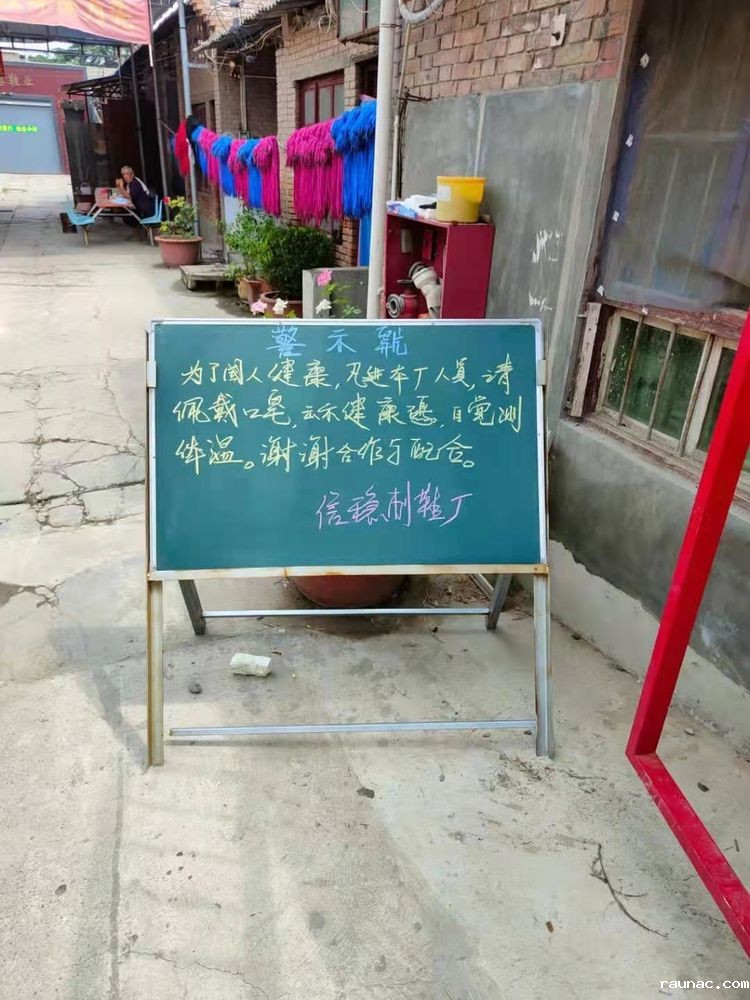 警示
为了国人健康,凡进本厂人员,请
佩戴口皂,示健康码,自觉测
体温。谢谢合作与配合。
信稳制鞋厂
鞋业
raunac.com